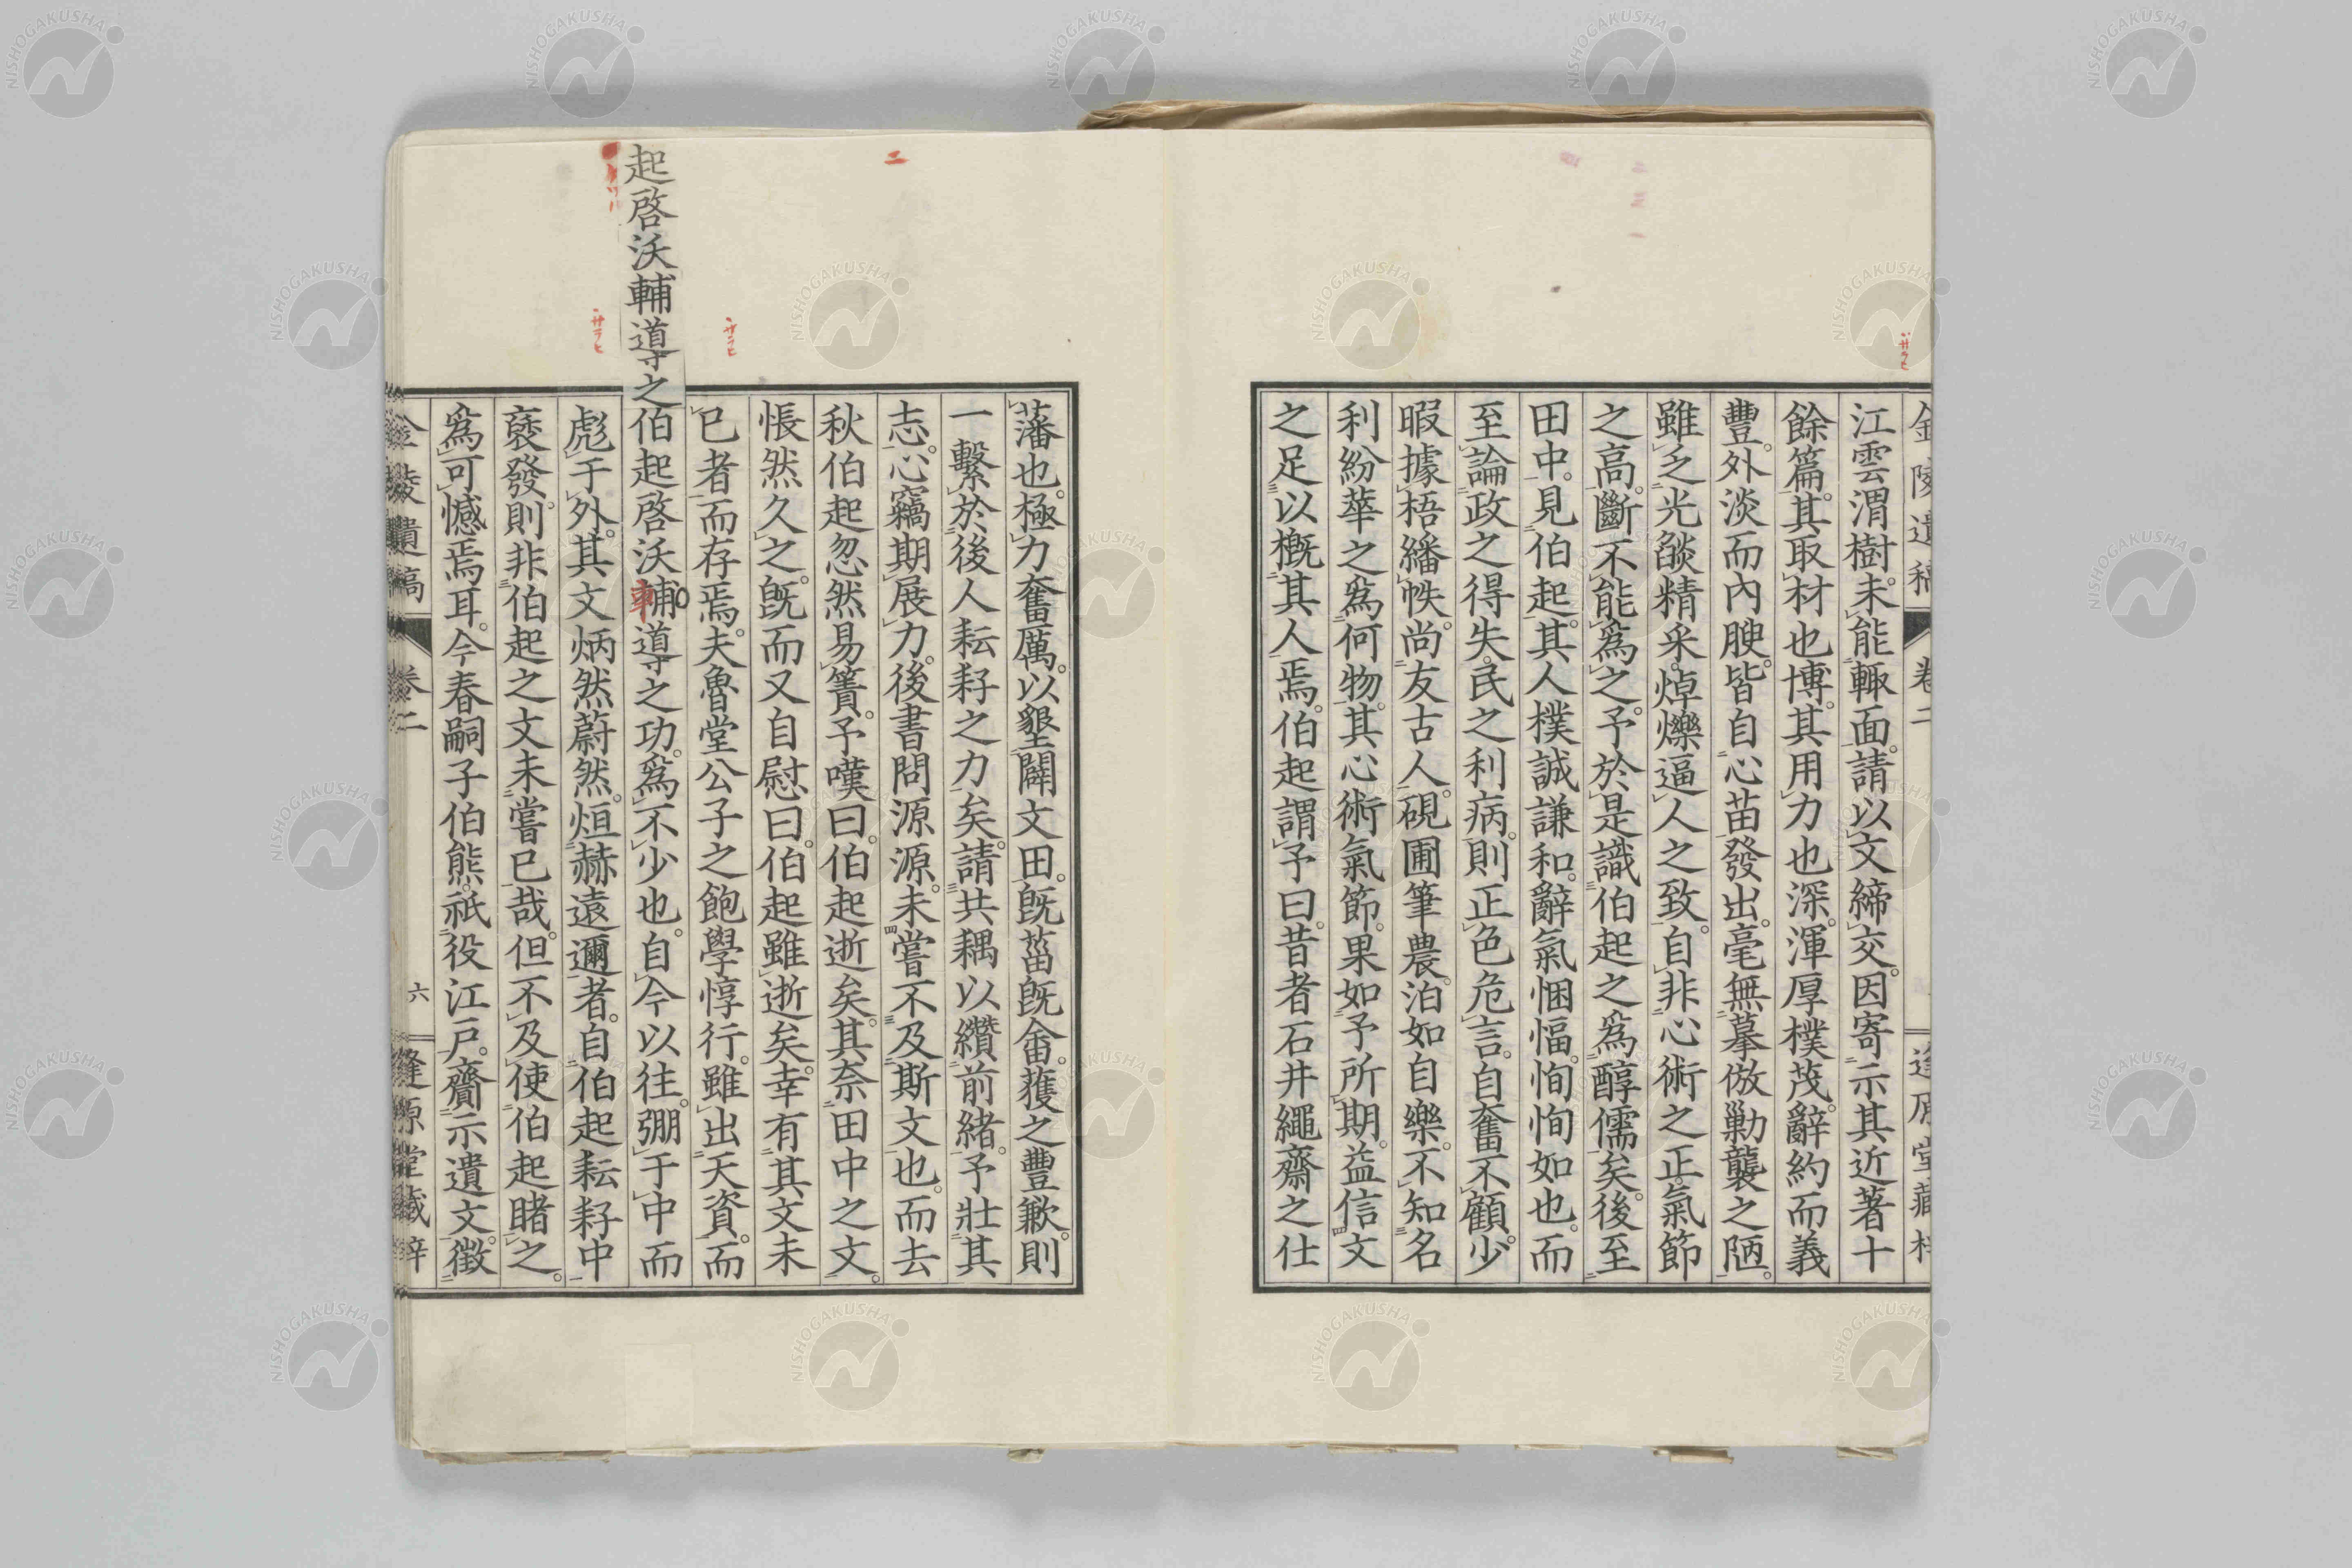 金陵遺稿 卷二 逢原堂藏梓
江雲渭樹。未能輙面。請以文締交。因寄示其近著十
餘篇。其取材也博。其用力也深。渾厚樸茂。辭約而義
豐。外淡而內腴。皆自心苗發出。毫無摹倣勦襲之陋。
雖乏光燄精采。焯爍逼人之致。自非心術之正。氣節
之高。斷不能爲之。予於是識伯起之爲醇儒矣。後至
田中。見伯起。其人樸誠謙和。辭氣悃愊。恂恂如也。而
至論政之得失。民之利病。則正色危言。自奮不顧。少
暇據梧繙帙。尚友古人。硯圃筆農。泊如自樂。不知名
利紛華之爲何物。其心術氣節。果如予所期。益信文
之足以概其人焉。伯起謂予曰。昔者石井繩齋之仕
藩也。極力奮厲。以墾闢文田。既菑既畬。獲之豐歉。則
一繫於後人耘耔之力矣。請共耦以纘前緒。予壯其
志。心竊期展力。後書問源源。未嘗不及斯文也。而去
秋伯起忽然易簀。予嘆曰。伯起逝矣。其奈田中之文。
悵然久之。既而又自慰曰。伯起雖逝矣。幸有其文未
已者而存焉。夫魯堂公子之飽學惇行。雖出天資。而
起啓沃輔導之
伯起啓沃輔導之功。爲不少也。自今以往。弸于中而
彪于外。其文炳然蔚然。烜赫遠邇者。自伯起耘耔中
襃發。則非伯起之文未嘗已哉。但不及使伯起睹之。
爲可憾焉耳。今春嗣子伯熊。祇役江戸。齎示遺文。徵
金陵遺稿 卷二 六 逢原堂藏梓